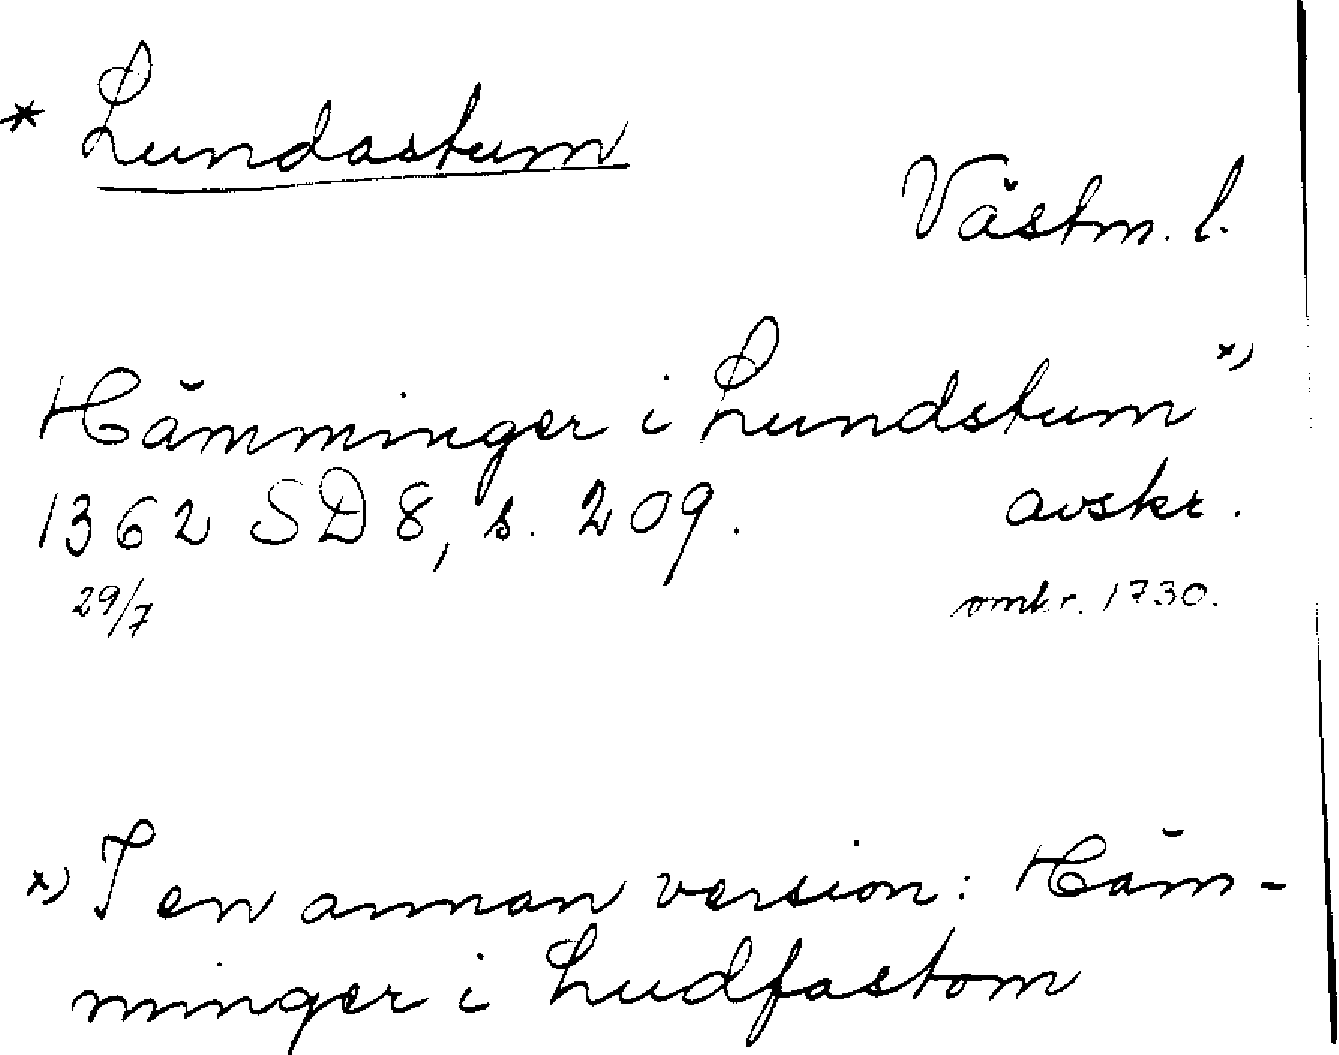 * Lundastum
Västm. l.
Hämminger i Lundstum x)
1362 SD 8, s. 209. avskr.
29/7 omkr. 1730.
x) I en annan version: Häm-
minger i Ludfastom